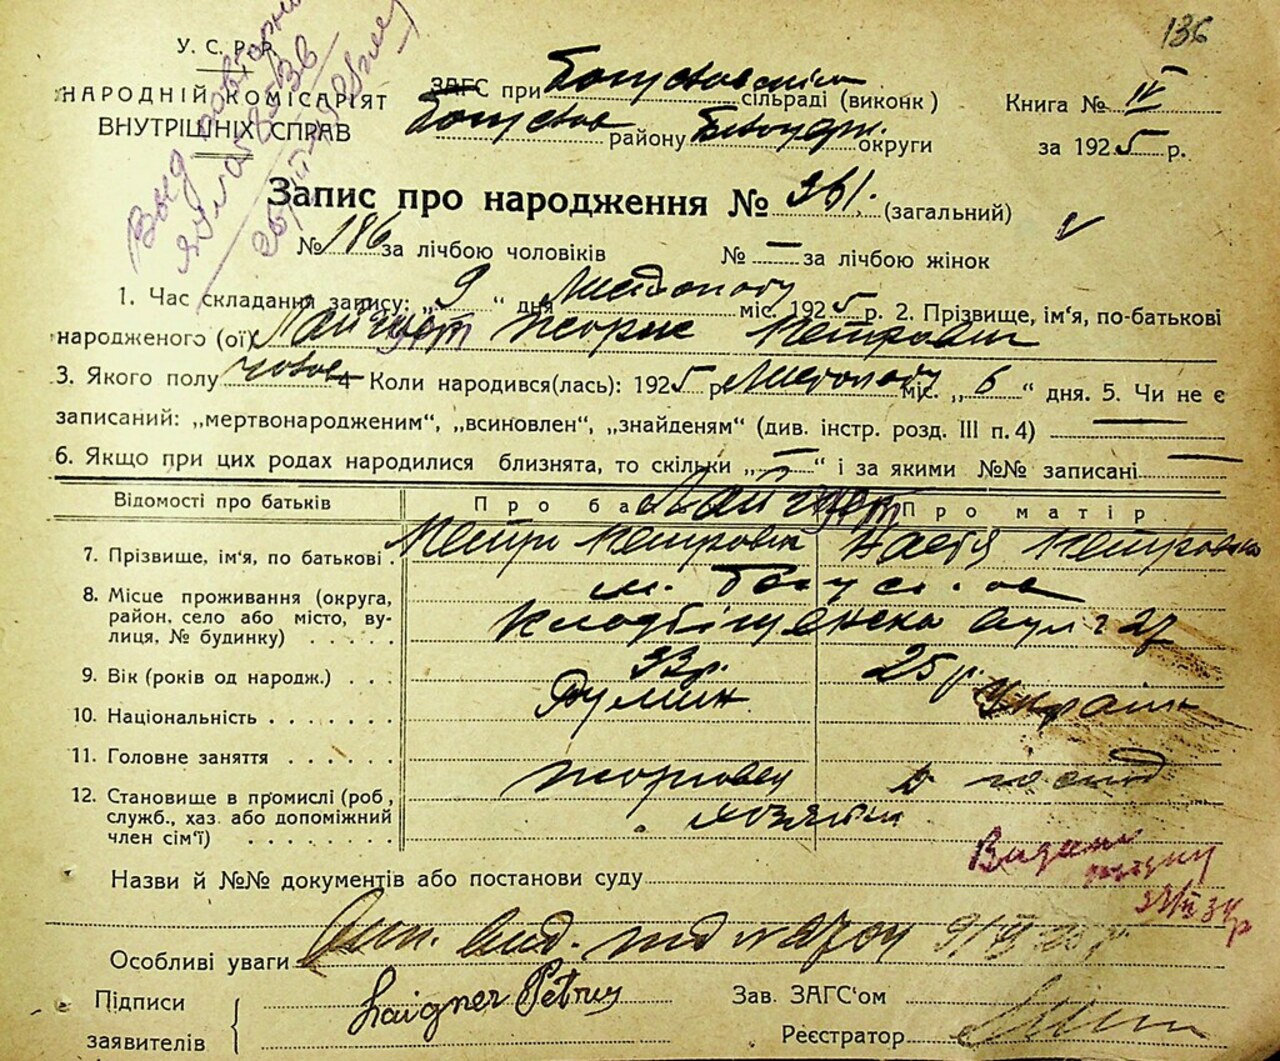 136
У. С. Р. Р.
НАРОДНІЙ КОМІСАРІЯТ
ВНУТРІШНІХ СПРАВ
ЗАГС при Богуславскім сільраді (виконк)
Богуслав району Білоцерк. округи
Книга № IV
за 1925 р.
Запис про народження № 361. (загальний)
№ 186 за лічбою чоловіків № — за лічбою жінок
1. Час складання запису: „ 9 “ дня Листопаду міс. 1925 р. 2. Прізвище, ім'я, по-батькові
народженого (ої) Жорж Петрович
3. Якого полу чолов 4 Коли народився(лась): 1925 р Листопаду міс. „ 6 “ дня. 5. Чи не є
записаний: „мертвонародженим“, „всиновлен“, „знайденям“ (див. інстр. розд. III п. 4) —
6. Якщо при цих родах народилися близнята, то скільки „ — “ і за якими №№ записані —
Відомості про батьків Про ба Про матір
7. Прізвище, ім'я, по батькові . Петро Петровіч Настя Петровна
8. Місце проживання (округа,
район, село або місто, ву-
лиця, № будинку) . . . .
м. Богуслав
вул 27
9. Вік (років од народж.) . . . 33 р. 25 р.
10. Національність . . . . . . . Румин Україн
11. Головне заняття . . . . . .
12. Становище в промислі (роб,
служб., хаз. або допоміжний
член сім'ї) . . . . . . . .
торговец
хозяїн
Видано
Назви й №№ документів або постанови суду
Особливі уваги
Підписи
заявителів
Laigner Petrus
Зав. ЗАГС'ом
Реєстратор